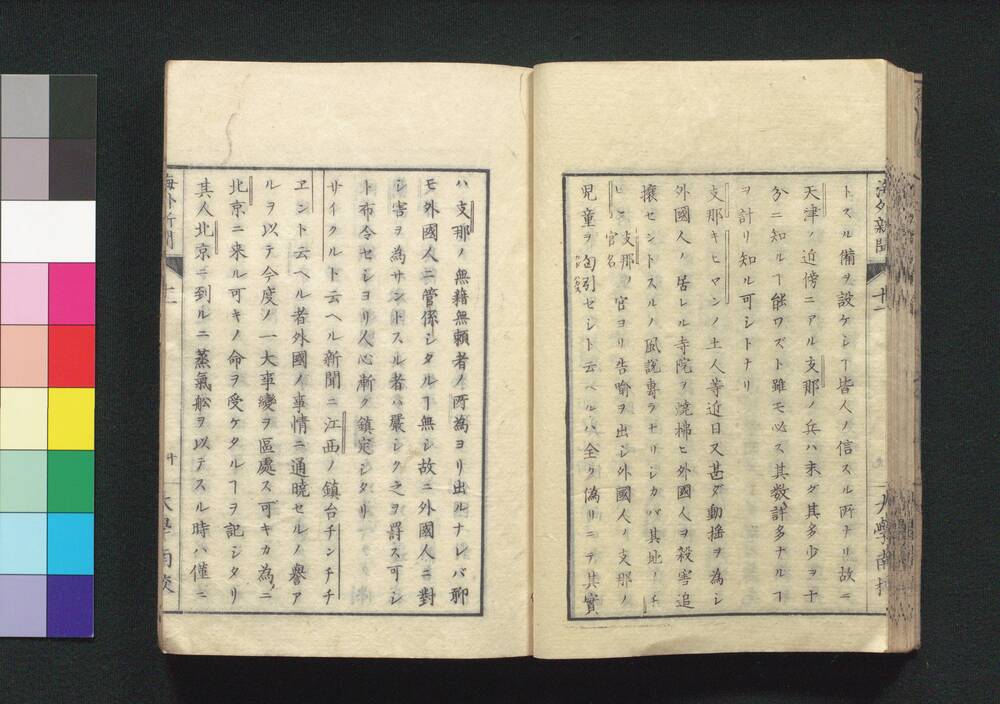 海外新聞 十一
大學南校
トスル備ヲ設ケシヿ皆人ノ信スル所ナリ故ニ
天津ノ近傍ニアル支那ノ兵ハ未ダ其多少ヲ十
分ニ知ルヿ能ワズト雖モ必ス其数許多ナルヿ
ヲ計リ知ル可シトナリ
支那キヒマンノ土人等近日又甚ダ動揺ヲ為シ
外國人ノ居レル寺院ヲ焼拂ヒ外國人ヲ殺害追
攘セントスルノ風説専ラナリシカバ其地ノチ
ヒー官名支那ノ官ヨリ告喩ヲ出シ外國人ノ支那ノ
児童ヲ勾引セシト云ヘルハ全ク偽リニテ其實
ハ支那ノ無藉無頼者ノ所為ヨリ出ルナレバ聊
モ外國人ニ管係シタルヿ無シ故ニ外國人ニ對
シ害ヲ為サントスル者ハ嚴シク之ヲ罸ス可シ
ト布令セシヨリ人心漸ク鎮定シタリ
サイクルト云ヘル新聞ニ江西ノ鎮台チンチチ
ヱント云ヘル者外國ノ事情ニ通暁セルノ譽ア
ルヲ以テ今度ノ一大事變ヲ區處ス可キカ為ニ
北京ニ来ル可キノ命ヲ受ケタルヿヲ記シタリ
其人北京ニ到ルニ蒸氣舩ヲ以テスル時ハ僅ニ
海外新聞
十
大學南校